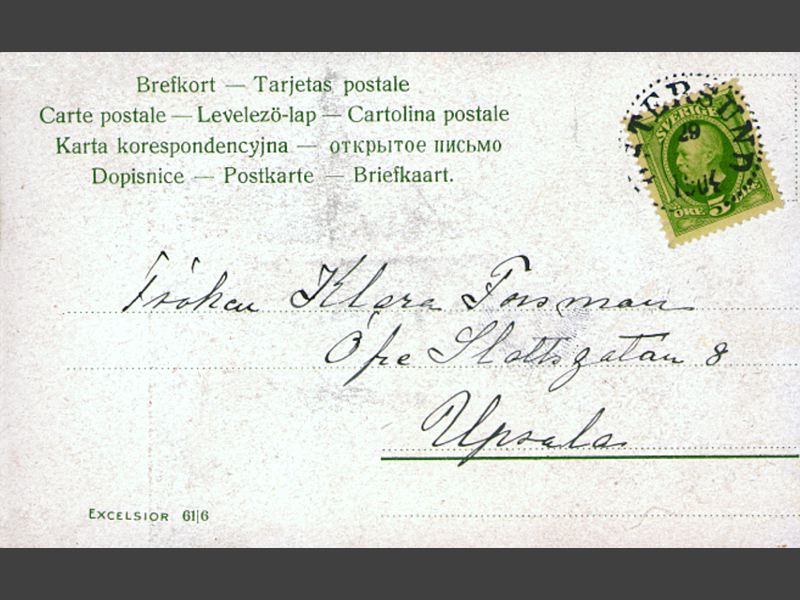 Brefkort — Tarjetas postale
Carte postale — Levelezö-lap — Cartolina postale
Karta korespondencyjna — открытое письмо
Dopisnice — Postkarte — Briefkaart.
ÖSTERSUND
29
SVERIGE
ÖRE 5
Fröken Klara Forsman
Öfre Slottsgatan 8
Upsala
EXCELSIOR 61|6